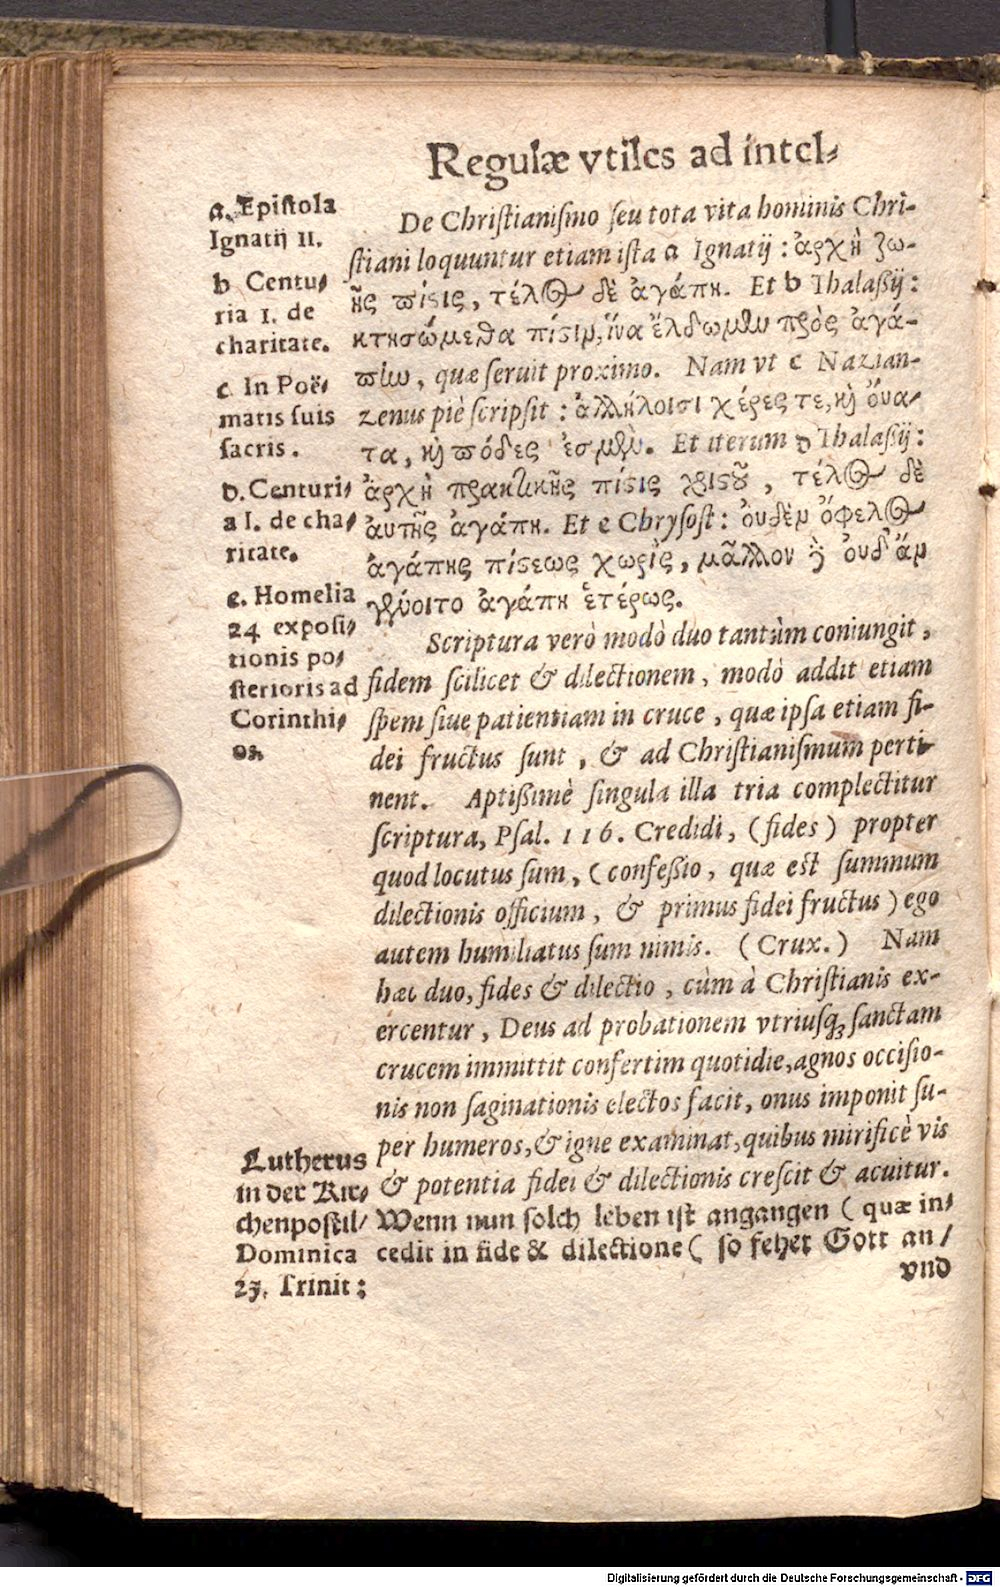 Regulæ vtiles ad intel-
a. Epistola
Ignatij II.
b Centu-
ria I. de
charitate.
c. In Poë-
matis suis
sacris.
d. Centuri-
a I. de cha-
ritate.
e. Homelia
24 exposi-
tionis po-
sterioris ad
Corinthi-
os.
De Christianismo seu tota vita hominis Chri-
stiani loquuntur etiam ista a Ignatij : ἀρχὴ ζω-
ῆς πίστις, τέλος δὲ ἀγάπη. Et b Thalaßij :
κτησώμεθα πίστιν, ἵνα ἔλθωμεν πρὸς ἀγά-
πην, quæ seruit proximo. Nam vt c Nazian-
zenus piè scripsit : ἀλλήλοισι χέρες τε, καὶ ὄυα-
τα, καὶ πόδες ἐσμὲν. Et iterum d Thalaßij :
ἀρχὴ πρακτικῆς πίστις χριστοῦ, τέλος δὲ
ἀυτῆς ἀγάπη. Et e Chrysost : ὀυδὲν ὄφελος
ἀγάπης πίστεως χωρὶς, μᾶλλον ἢ ὀυδ' ἄν
γένοιτο ἀγάπη ἑτέρως.
Scriptura verò modò duo tantùm coniungit,
fidem scilicet & dilectionem, modò addit etiam
spem siue patientiam in cruce, quæ ipsa etiam fi-
dei fructus sunt, & ad Christianismum perti-
nent. Aptißimè singula illa tria complectitur
scriptura, Psal. 116. Credidi, (fides) propter
quod locutus sum, (confeßio, quæ est summum
dilectionis officium, & primus fidei fructus) ego
autem humiliatus sum nimis. (Crux.) Nam
hæc duo, fides & dilectio, cùm à Christianis ex-
ercentur, Deus ad probationem vtriusq; sanctam
crucem immittit confertim quotidie, agnos occisio-
nis non saginationis electos facit, onus imponit su-
per humeros, & igne examinat, quibus mirificè vis
& potentia fidei & dilectionis crescit & acuitur.
Lutherus
in der Kir-
chenpostil/
Dominica
23. Trinit :
Wenn nun solch leben ist angangen ( quæ in-
cedit in fide & dilectione ( so fehet Gott an/
vnd
Digitalisierung gefördert durch die Deutsche Forschungsgemeinschaft - DFG